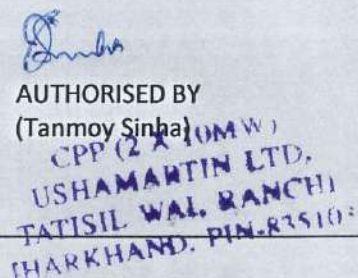 Sinha
AUTHORISED BY
(Tanmoy Sinha)
CPP (2 X 10MW)
USHAMARTIN LTD,
TATISILWAI, RANCHI
JHARKHAND. PIN-83510